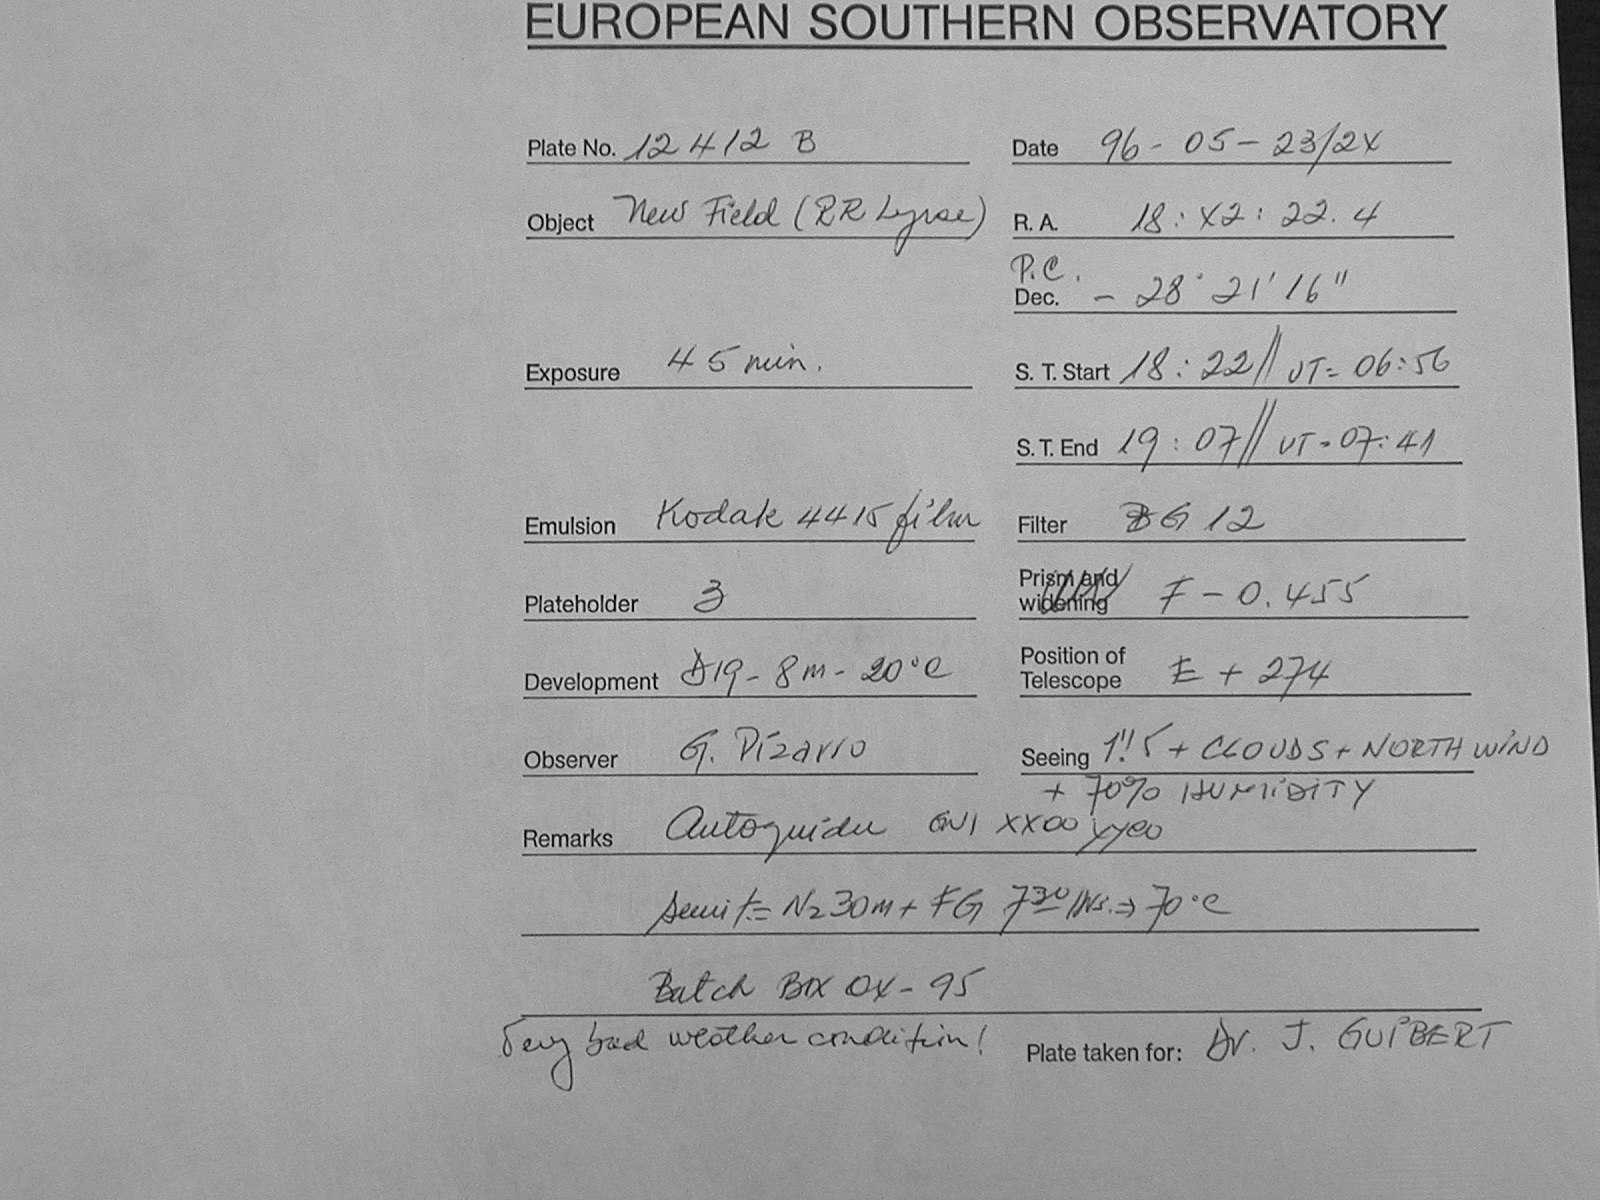 EUROPEAN SOUTHERN OBSERVATORY
Plate No. 12412 B Date 96-05-23/24
Object New Field (RR Lyrae) R. A. 18:42:22.4
P.C.
Dec. - 28° 21' 16"
Exposure 45 min. S. T. Start 18:22// UT= 06:56
S. T. End 19:07// UT=07:41
Emulsion Kodak 4415 film Filter BG 12
Plateholder 3 Prism and widening F - 0.455
Development D19 - 8m - 20°C Position of Telescope E + 274
Observer G. Pizarro Seeing 1"!5 + CLOUDS + NORTH WIND
+ 70% HUMIDITY
Remarks Autoguider GNI XX00 YY00
N2 30m + FG 7 30 hrs. → 70°C
Batch Box 04-95
Very bad weather condition! Plate taken for: Dr. J. GUIBERT